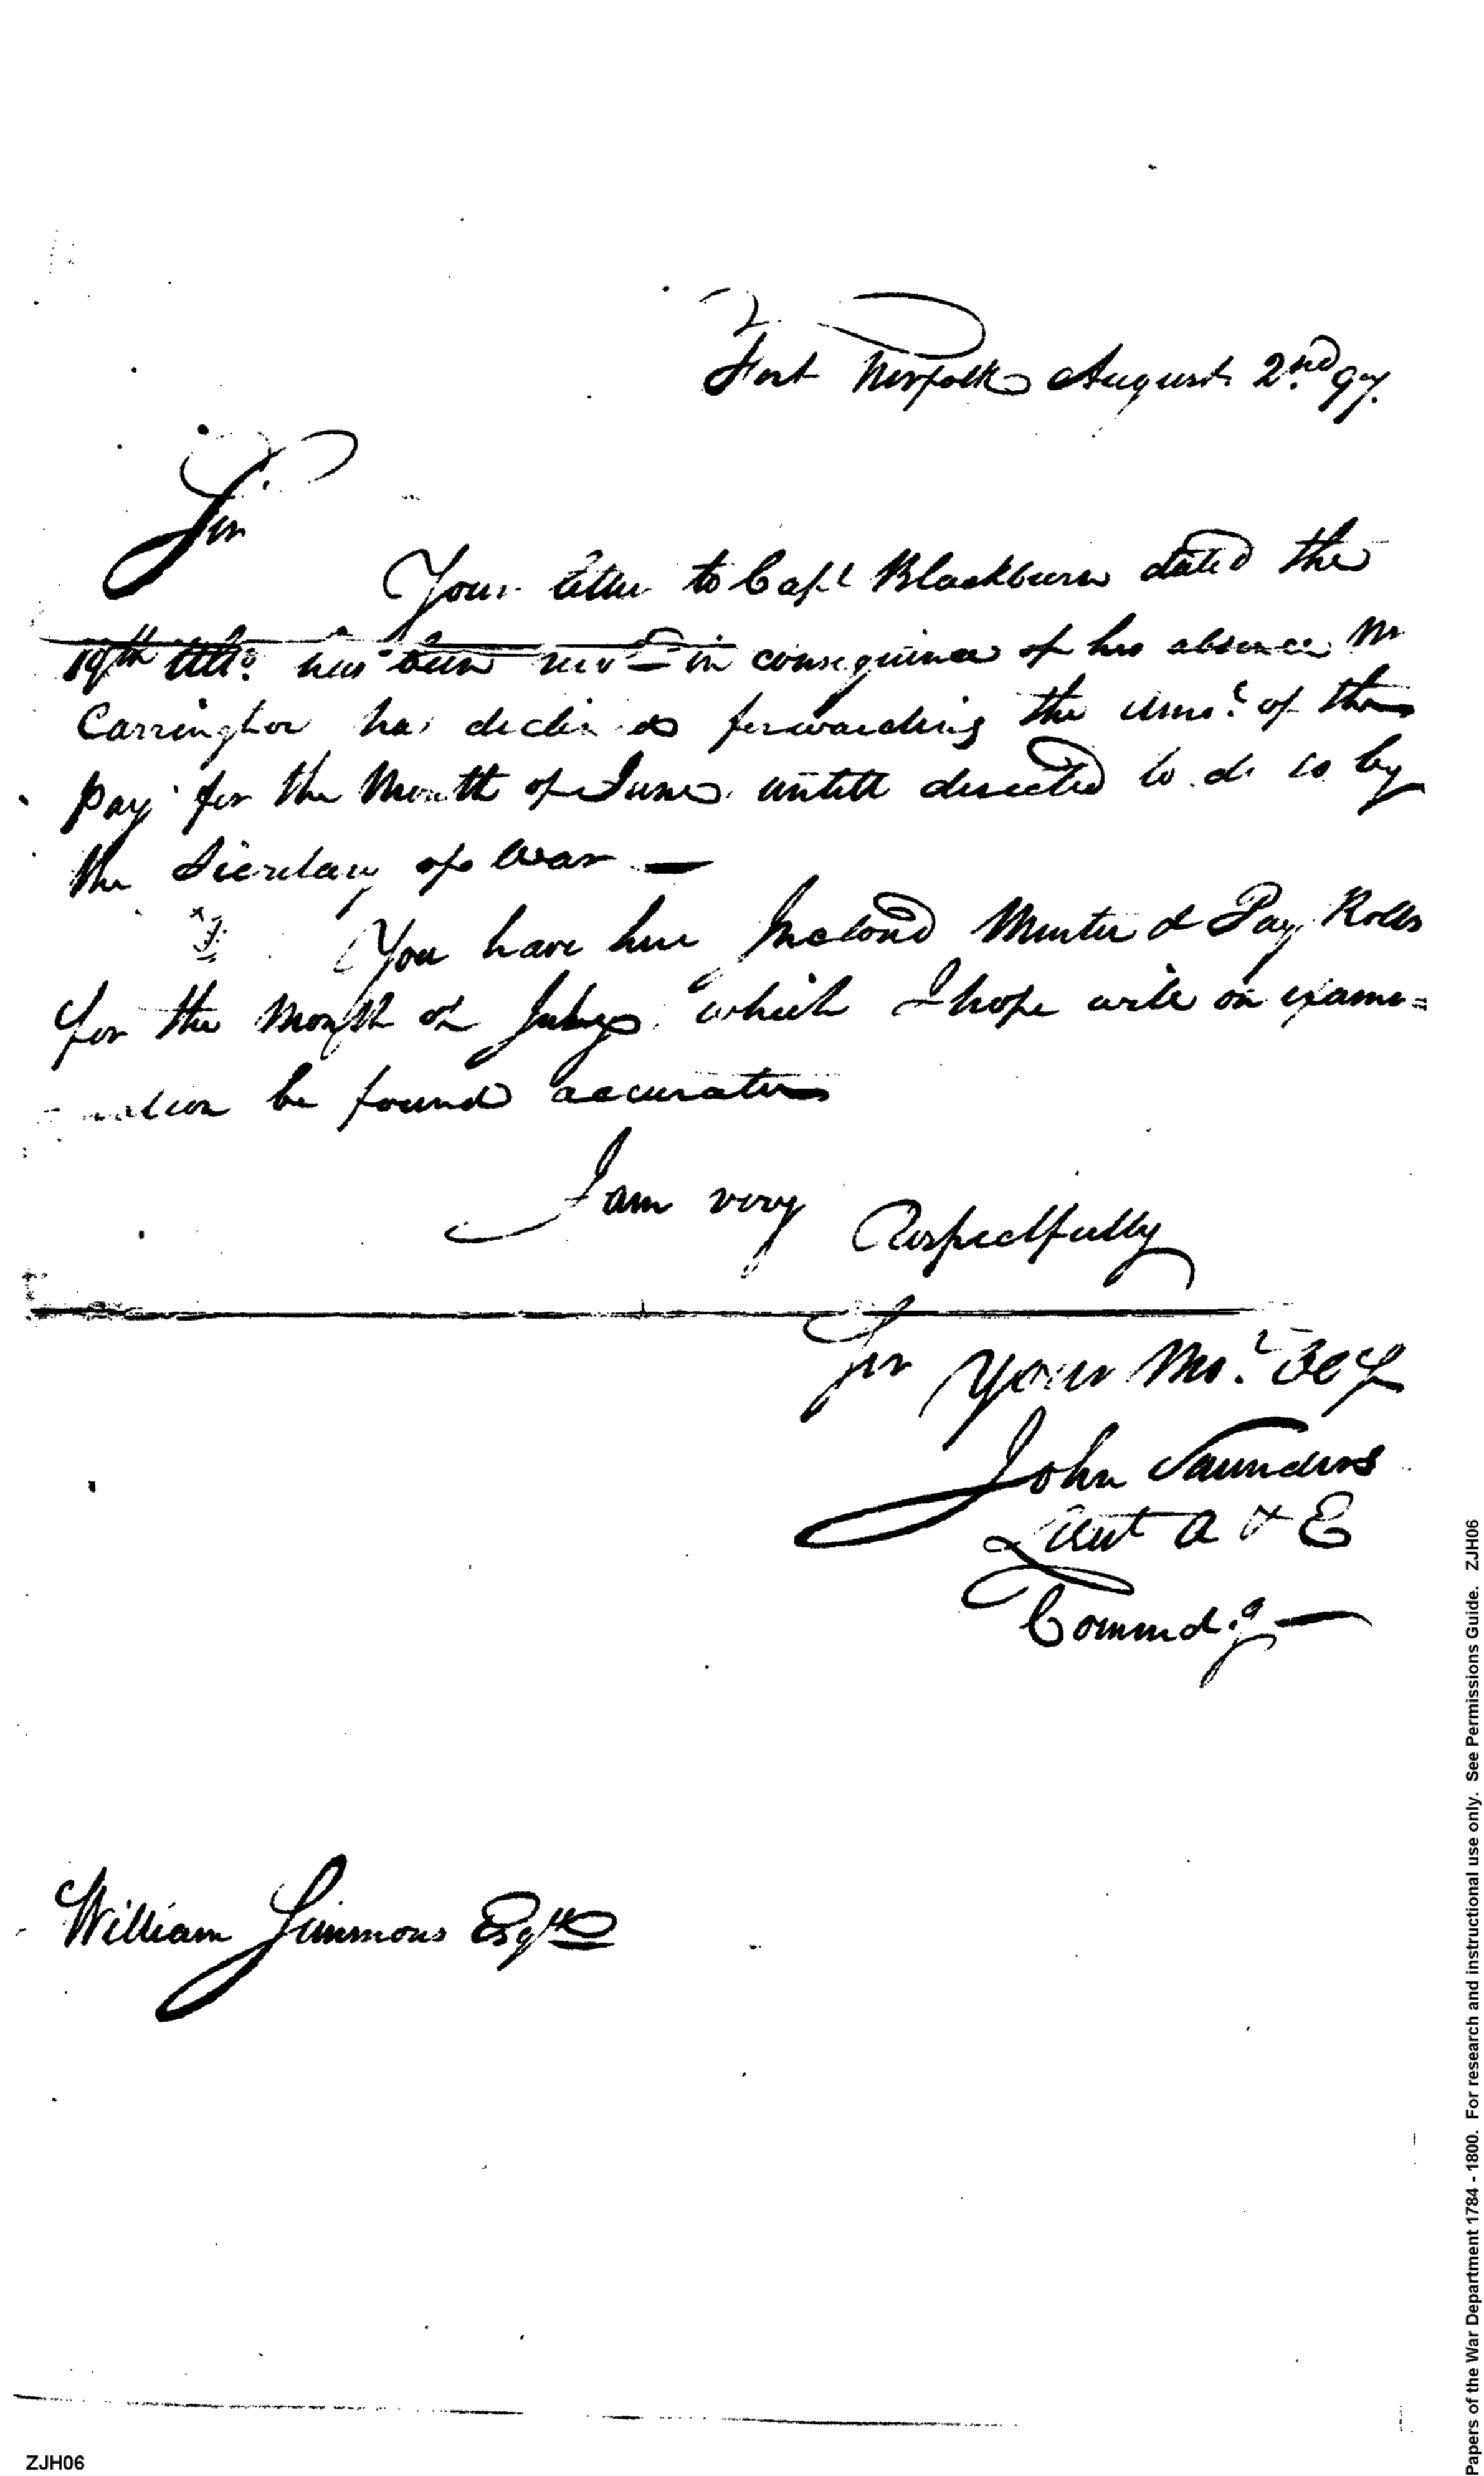 Fort Norfolk August 2nd 97.
Sir
Your letter to Capt Blackburn dated the
19th Ulto. has been recvd in consequence of his absence Mr
Carrington has declined forwarding the amot. of the
pay for the Month of June untill directed to do so by
the Secretary of War —
You have here Inclosd Muster & Pay Rolls
for the Month of July which I hope will on exami=
=nation be found accurate
I am very Respectfully
Sir Your Mo. Obt
John Saunders
Lieut A & E
Commdg —
William Simmons Esqr
ZJH06
Papers of the War Department 1784 - 1800. For research and instructional use only. See Permissions Guide. ZJH06